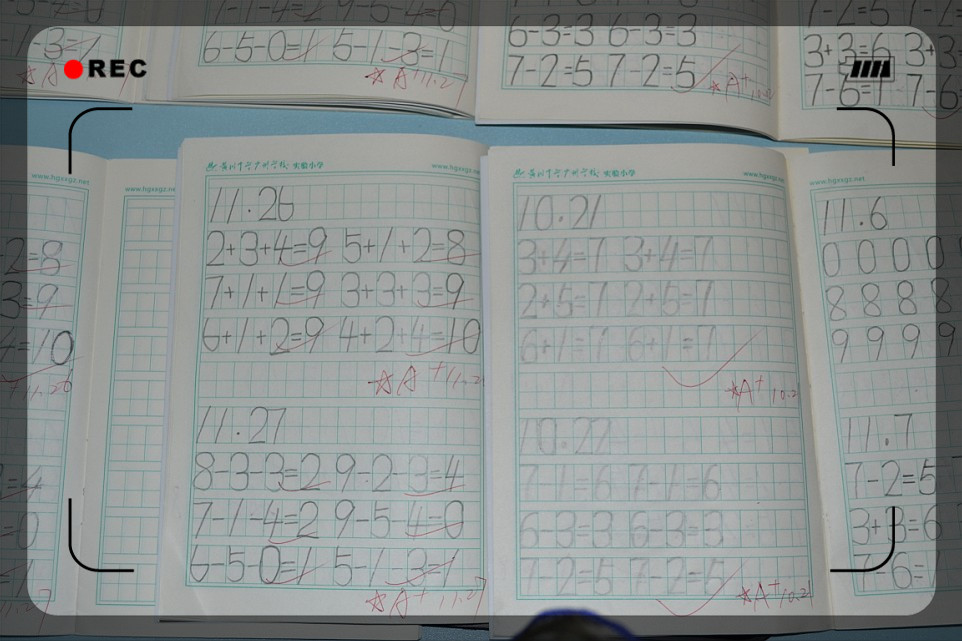 -3=1
6-5-0=1 5-1-3=1
6-3=3 6-3=3
7-2=5 7-2=5
A+
7-2=5
3+3=6 3+3
7-6=1 7-6
REC
www.hgxxgz.net
www.hgxxgz.net
实验小学
www.hgxxgz.net
11.26
2+3+4=9 5+1+2=8
7+1+1=9 3+3+3=9
6+1+2=9 4+2+4=10
A+ 11.2
11.27
8-3-3=2 9-2-3=4
7-1-4=2 9-5-4=0
6-5-0=1 5-1-3=1
A+ 11.27
实验小学
www.hgxxgz.net
10.21
3+4=7 3+4=7
2+5=7 2+5=7
6+1=7 6+1=7
A+ 10.2
10.22
7-1=6 7-1=6
6-3=3 6-3=3
7-2=5 7-2=5
A+ 10.2
www.hgxxgz.net
11.6
0 0 0 0
8 8 8 8
9 9 9 9
11.7
7-2=5
3+3=6
7-6=1
2=8
3=9
4=10
11.26
=4
=0